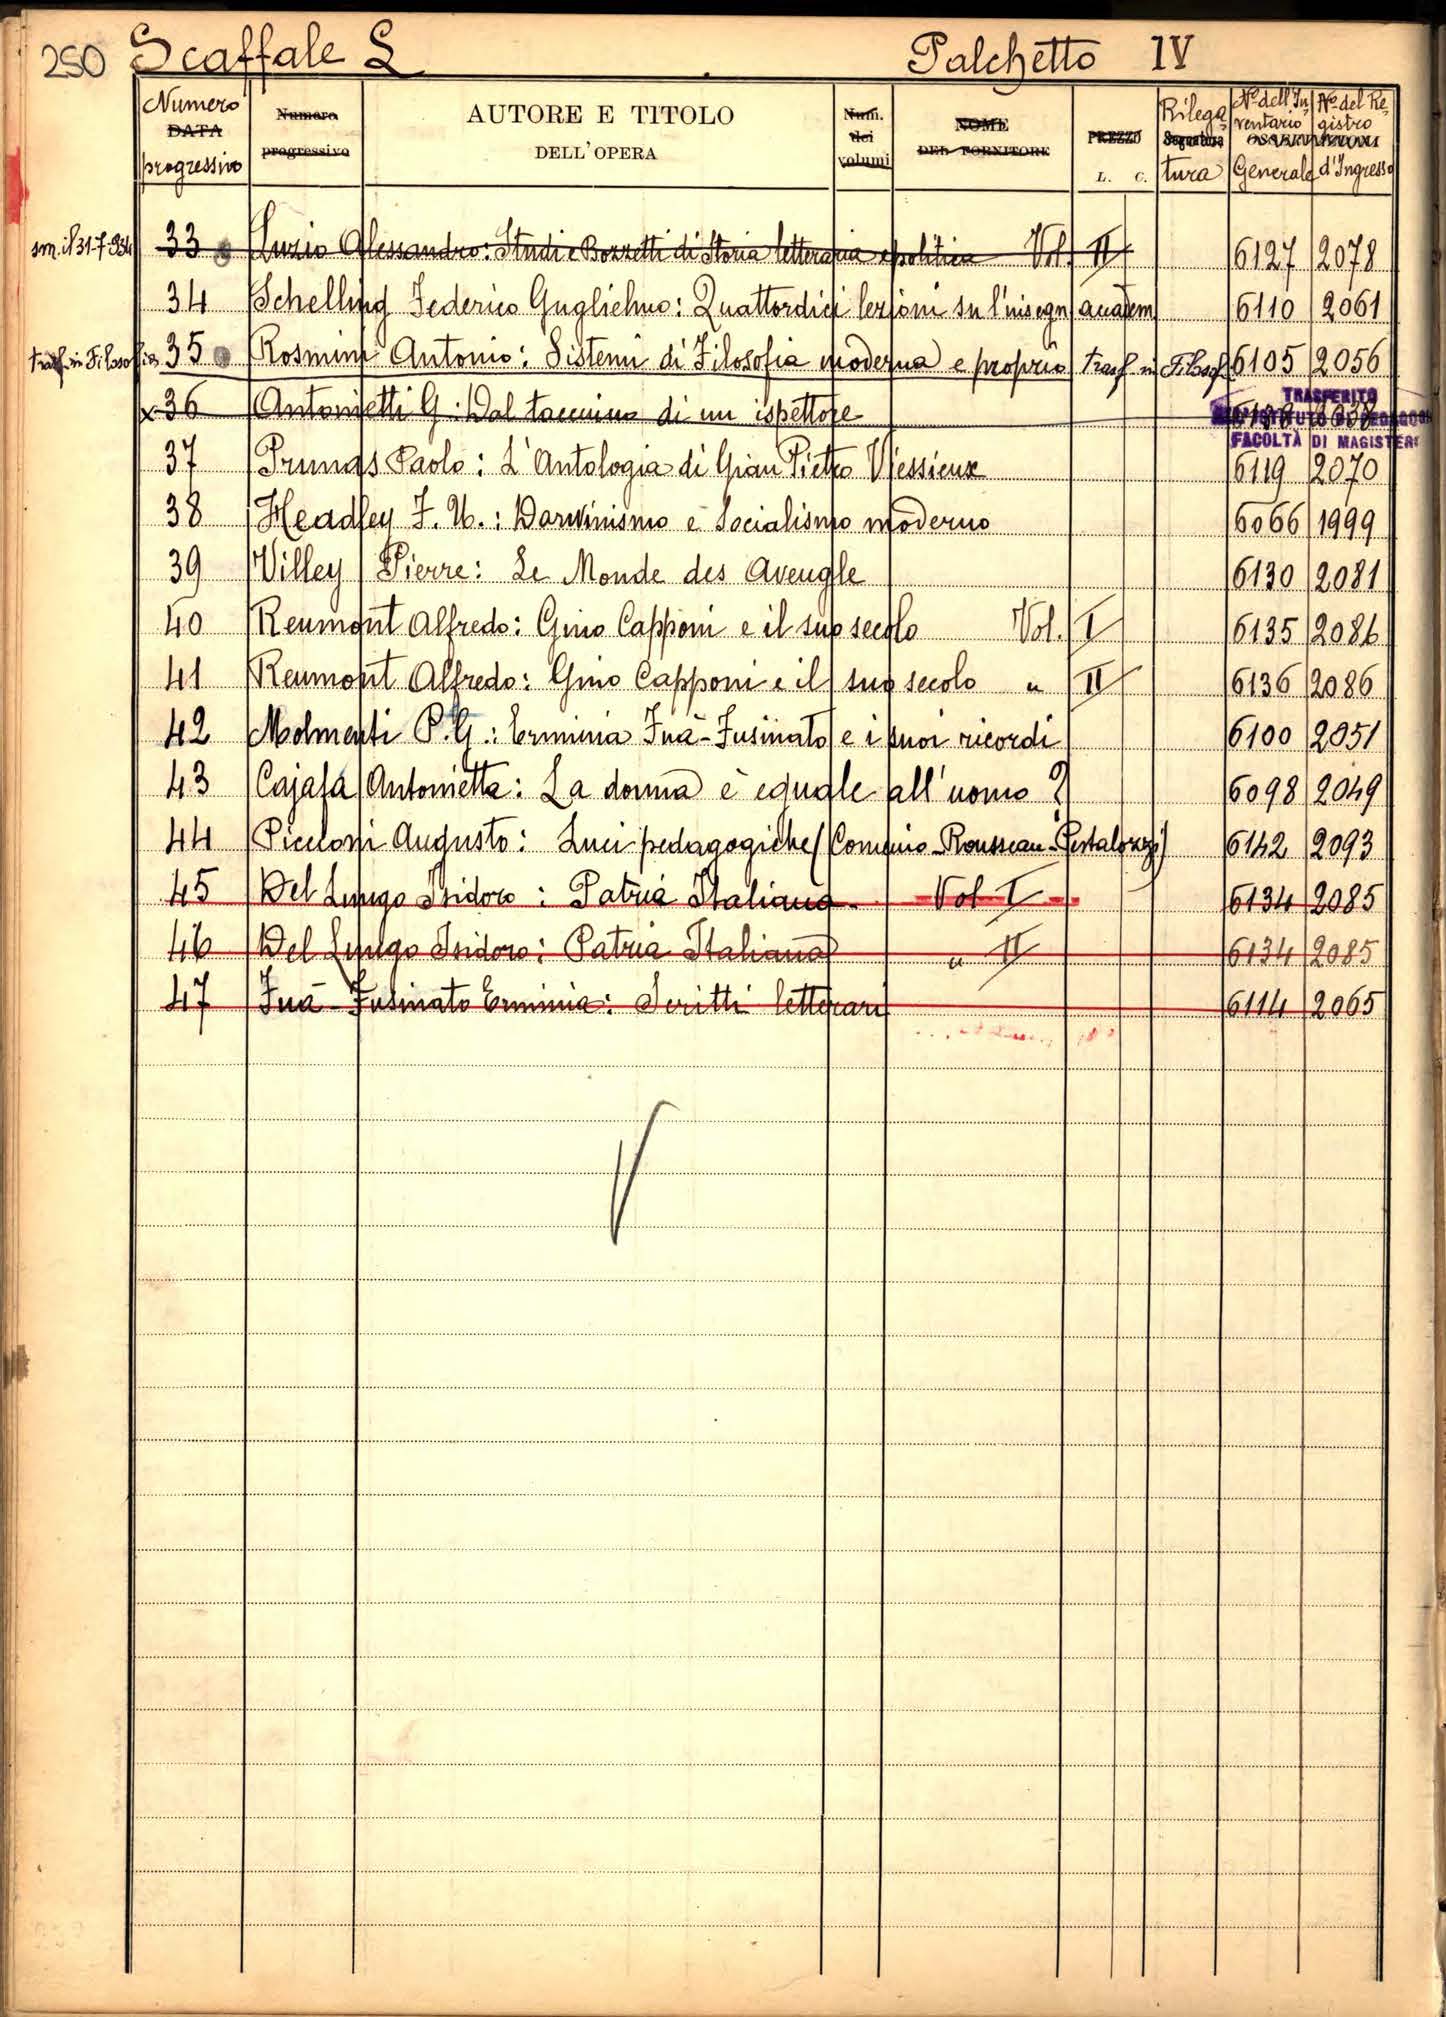 250 Scaffale L Palchetto IV
Numero DATA progressivo
Numero progressivo
AUTORE E TITOLO
DELL'OPERA
Num. dei volumi
NOME DEL FORNITORE
PREZZO
L. C.
Rilega- Segnatura tura
No. dell'In- ventario Generale
OSSERVAZIONI
No. del Re- gistro d'Ingresso
sm. il 31-7-934 33 Luzio Alessandro: Studi e Bozzetti di Storia letteraria e politica Vol. II 6127 2078
34 Schelling Federico Guglielmo: Quattordici lezioni su l'insegn accadem 6110 2061
trasf. in Filosofia 35 Rosmini Antonio: Sistemi di Filosofia moderna e proprio trasf in Filosof. 6105 2056
x 36 Antonietti G.: Dal taccuino di un ispettore
TRASFERITO
FACOLTÀ DI MAGISTER
37 Prunas Paolo: L'Antologia di Gian Pietro Viessieux 6119 2070
38 Headley F. U.: Darvinismo e Socialismo moderno 6066 1999
39 Villey Pierre: Le Monde des Aveugle 6130 2081
40 Reumont Alfredo: Gino Capponi e il suo secolo Vol. I 6135 2086
41 Reumont Alfredo: Gino Capponi e il suo secolo " II 6136 2086
42 Molmenti P. G.: Erminia Fuà-Fusinato e i suoi ricordi 6100 2051
43 Cajafa Antonietta: La donna è eguale all'uomo? 6098 2049
44 Piccioni Augusto: Luci pedagogiche (Comenio-Rousseau-Pestalozzi) 6142 2093
45 Del Lungo Isidoro: Patria Italiana Vol I 6134 2085
46 Del Lungo Isidoro: Patria Italiana " II 6134 2085
47 Fuà-Fusinato Erminia: Scritti letterari 6114 2065